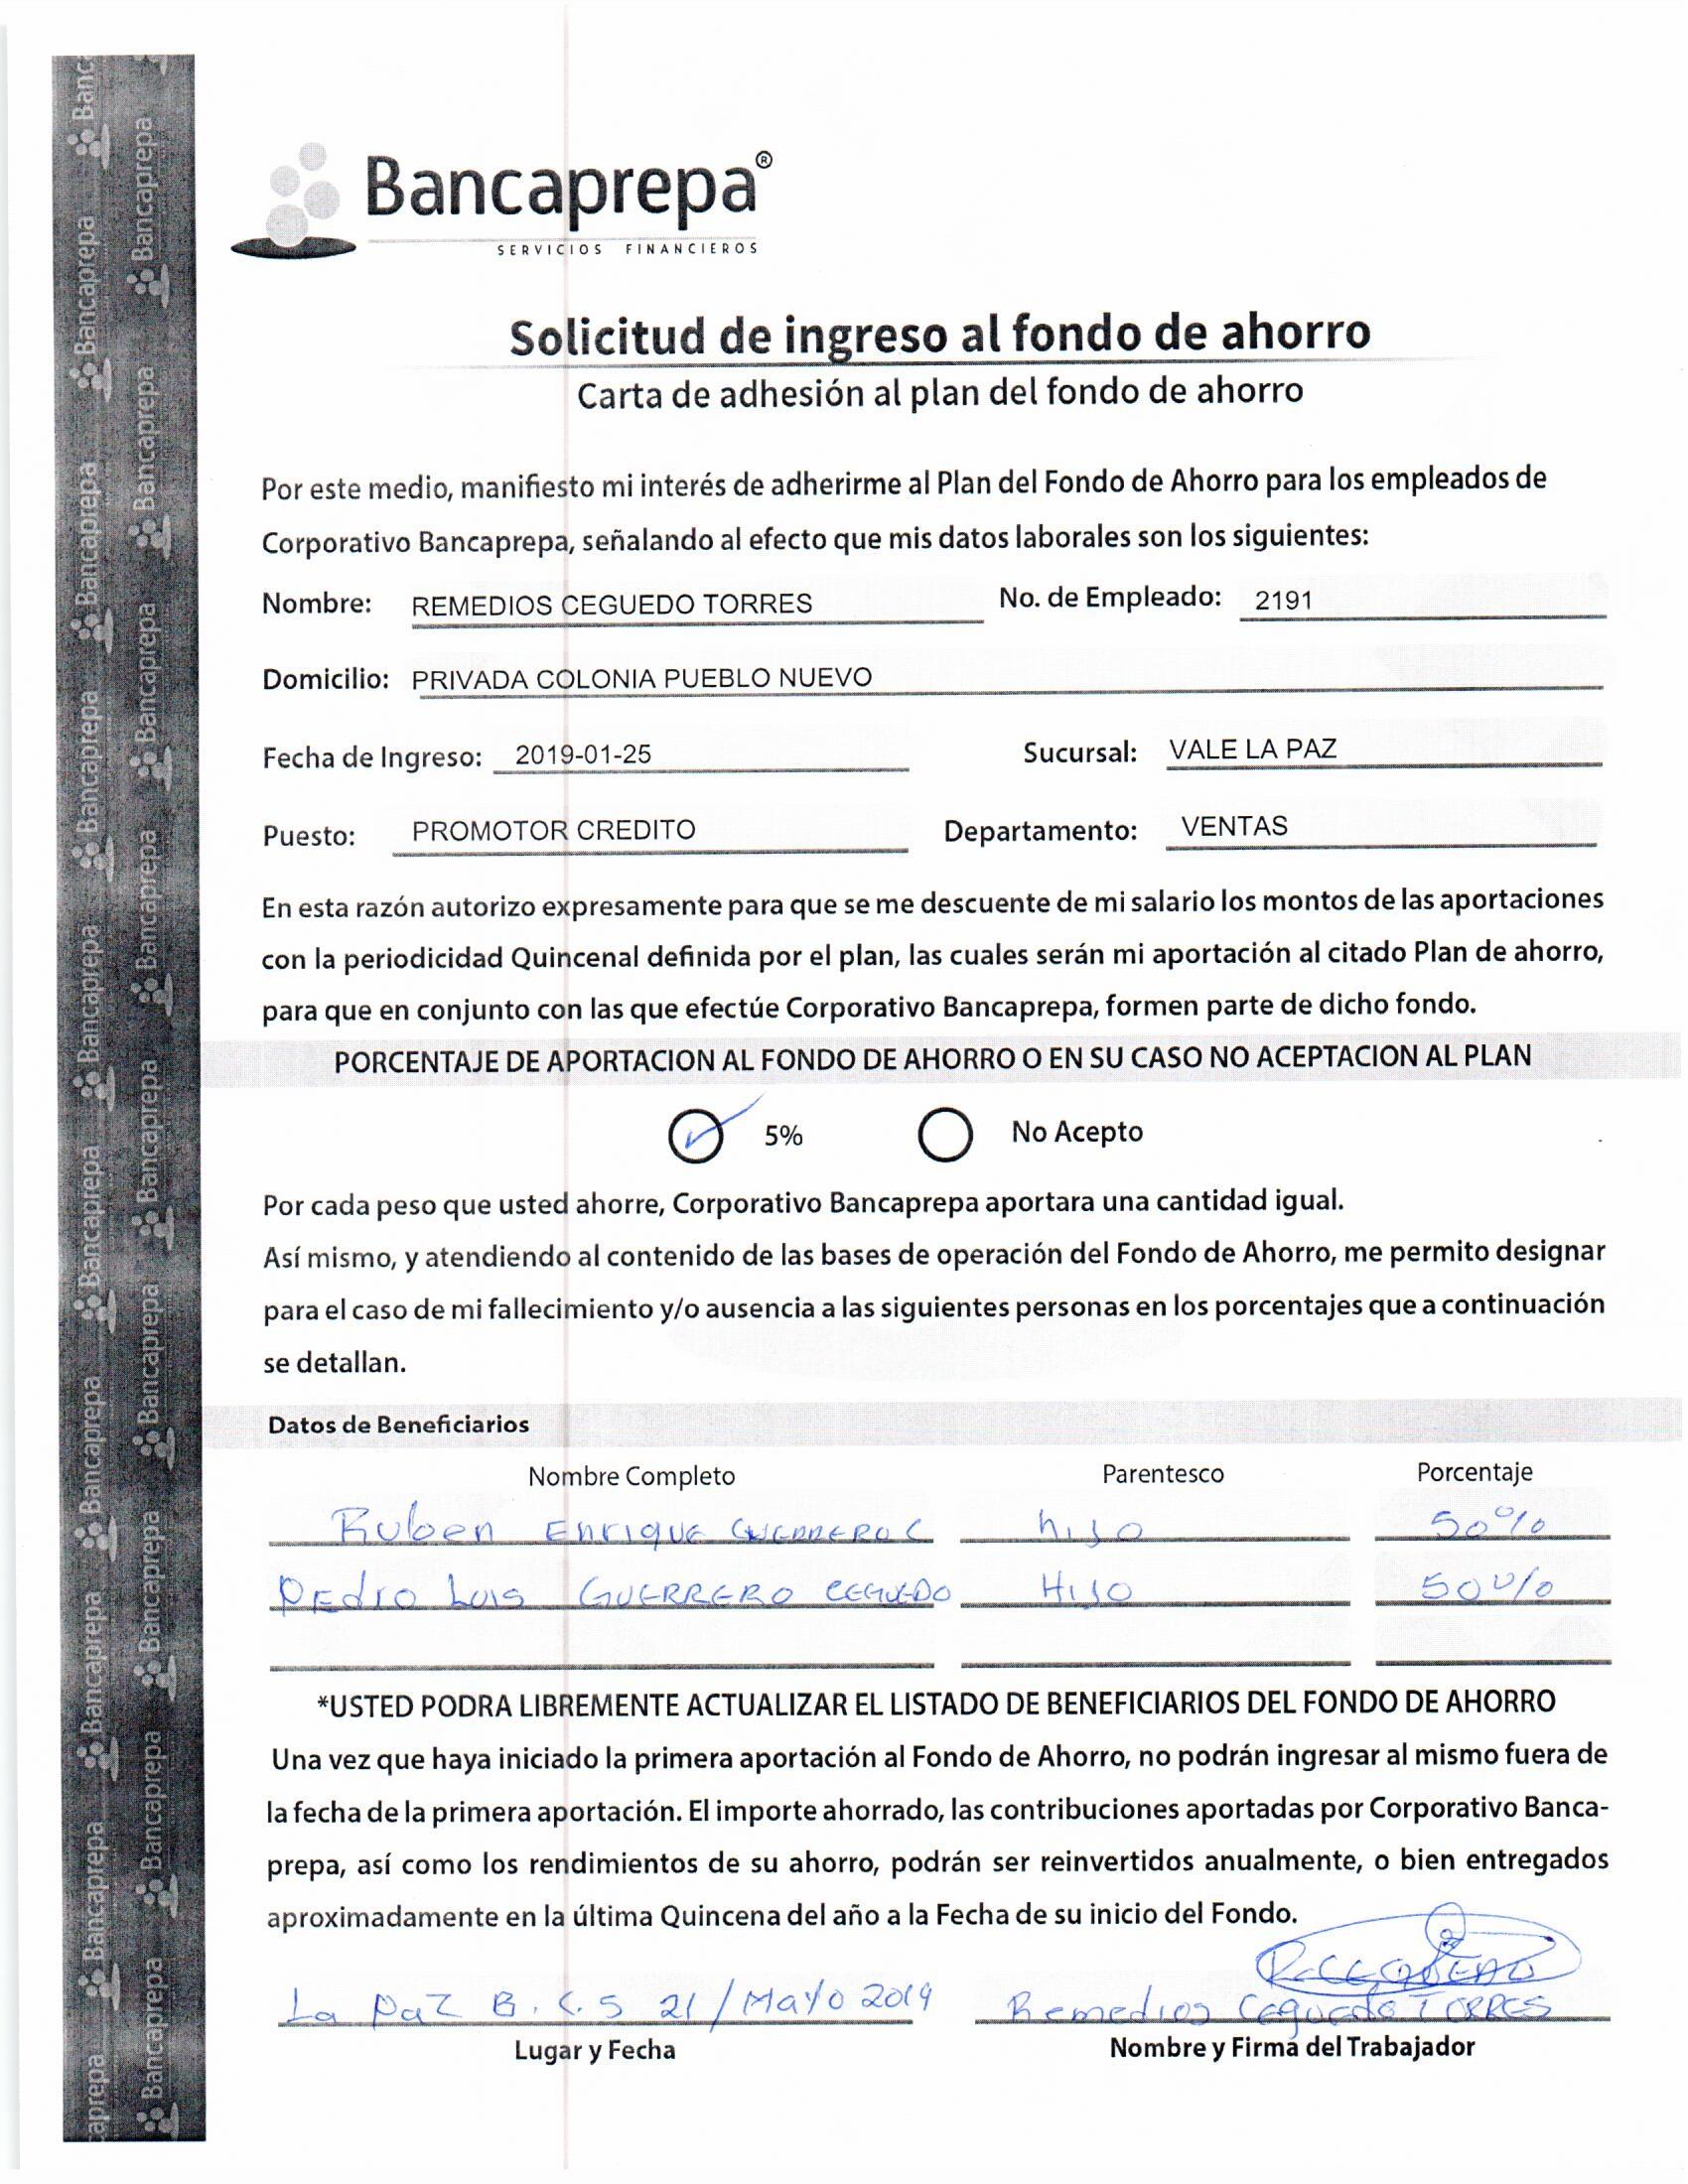 Bancaprepa®
SERVICIOS FINANCIEROS
Solicitud de ingreso al fondo de ahorro
Carta de adhesión al plan del fondo de ahorro
Por este medio, manifiesto mi interés de adherirme al Plan del Fondo de Ahorro para los empleados de
Corporativo Bancaprepa, señalando al efecto que mis datos laborales son los siguientes:
Nombre: REMEDIOS CEGUEDO TORRES No. de Empleado: 2191
Domicilio: PRIVADA COLONIA PUEBLO NUEVO
Fecha de Ingreso: 2019-01-25 Sucursal: VALE LA PAZ
Puesto: PROMOTOR CREDITO Departamento: VENTAS
En esta razón autorizo expresamente para que se me descuente de mi salario los montos de las aportaciones
con la periodicidad Quincenal definida por el plan, las cuales serán mi aportación al citado Plan de ahorro,
para que en conjunto con las que efectúe Corporativo Bancaprepa, formen parte de dicho fondo.
PORCENTAJE DE APORTACION AL FONDO DE AHORRO O EN SU CASO NO ACEPTACION AL PLAN
5% No Acepto
Por cada peso que usted ahorre, Corporativo Bancaprepa aportara una cantidad igual.
Así mismo, y atendiendo al contenido de las bases de operación del Fondo de Ahorro, me permito designar
para el caso de mi fallecimiento y/o ausencia a las siguientes personas en los porcentajes que a continuación
se detallan.
Datos de Beneficiarios
Nombre Completo Parentesco Porcentaje
Ruben Enrique GUERRERO C hijo 50%
PEdro Luis GUERRERO CEGUEDO HIJO 50%
*USTED PODRA LIBREMENTE ACTUALIZAR EL LISTADO DE BENEFICIARIOS DEL FONDO DE AHORRO
Una vez que haya iniciado la primera aportación al Fondo de Ahorro, no podrán ingresar al mismo fuera de
la fecha de la primera aportación. El importe ahorrado, las contribuciones aportadas por Corporativo Banca-
prepa, así como los rendimientos de su ahorro, podrán ser reinvertidos anualmente, o bien entregados
aproximadamente en la última Quincena del año a la Fecha de su inicio del Fondo.
La Paz B.C.S 21/Mayo 2019 Remedios Ceguedo TORRES
Lugar y Fecha Nombre y Firma del Trabajador